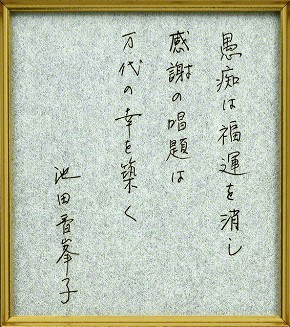 愚痴は福運を消し
感謝の唱題は
万代の幸を築く
池田香峯子